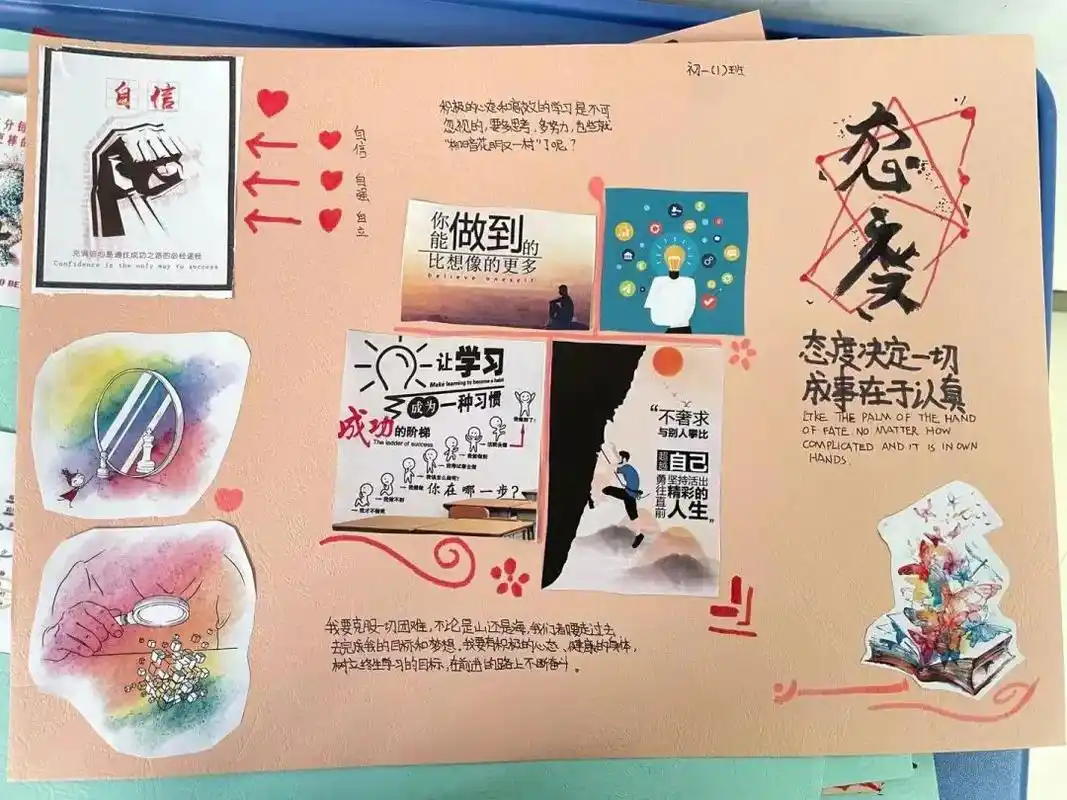 初一(1)班
自信
充满信心是通往成功之路的必经途径
Confidence is the only way to success
自信
自强
自立
积极的心态和高效的学习是不可
忽视的,要多思考,多努力,也些就
"柳暗花明又一村"了呢?
你能做到的
比想像的更多
believe oneself
让学习
Make learning to become a habit
成为一种习惯
成功的阶梯
The ladder of success
你在哪一步?
"不奢求
与别人攀比
超越自己
勇往直前
坚持活出
精彩的
人生"
态度
态度决定一切
成事在于认真
LIKE THE PALM OF THE HAND
OF FATE NO MATTER HOW
COMPLICATED AND IT IS IN OWN
HANDS.
我要克服一切困难,不论是山还是海,我们都要走过去,
去完成我的目标和梦想,我要有积极的心态、健康的身体,
树立终生学习的目标,在前进的路上不断奋斗。